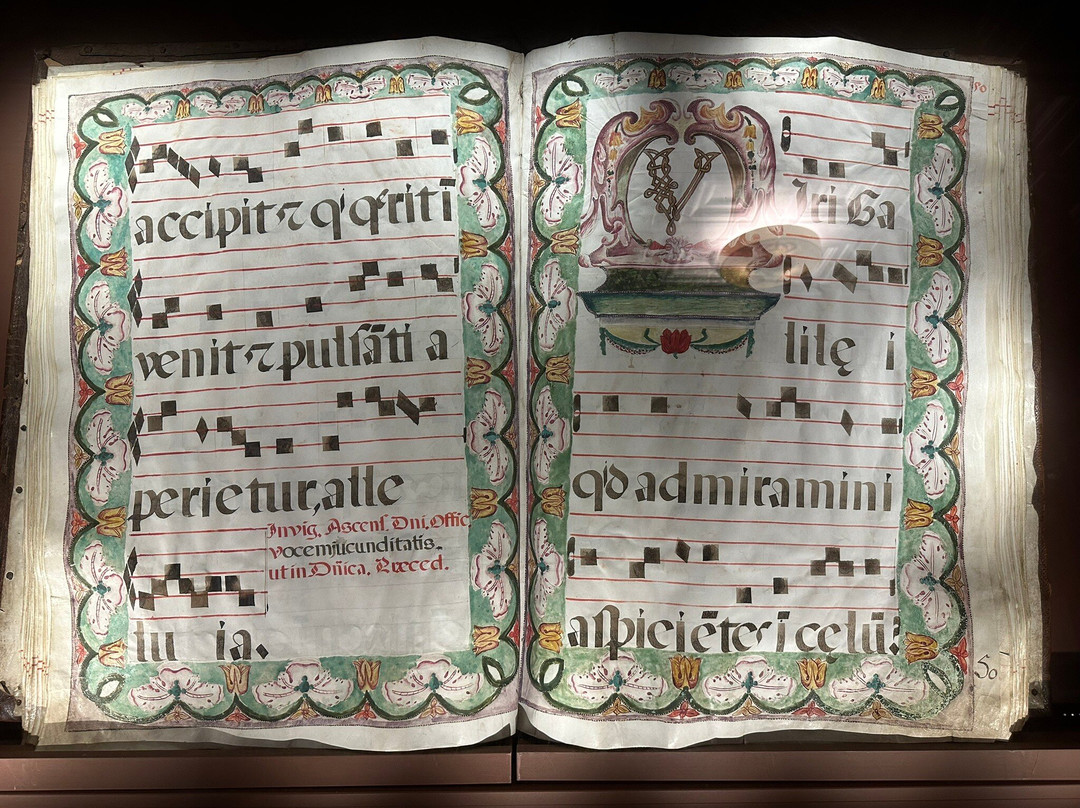 accipit ⁊ q' q̃rit i
venit ⁊ pulsãti a
perietur, alle
Invig. Ascens. Dni. Offic
vocem jucunditatis.
ut in Dñica. Præced.
lu ia.
V
Iri Ga
lilę i
qd admiramini
aspiciẽtes ĩ cęlũ?
50